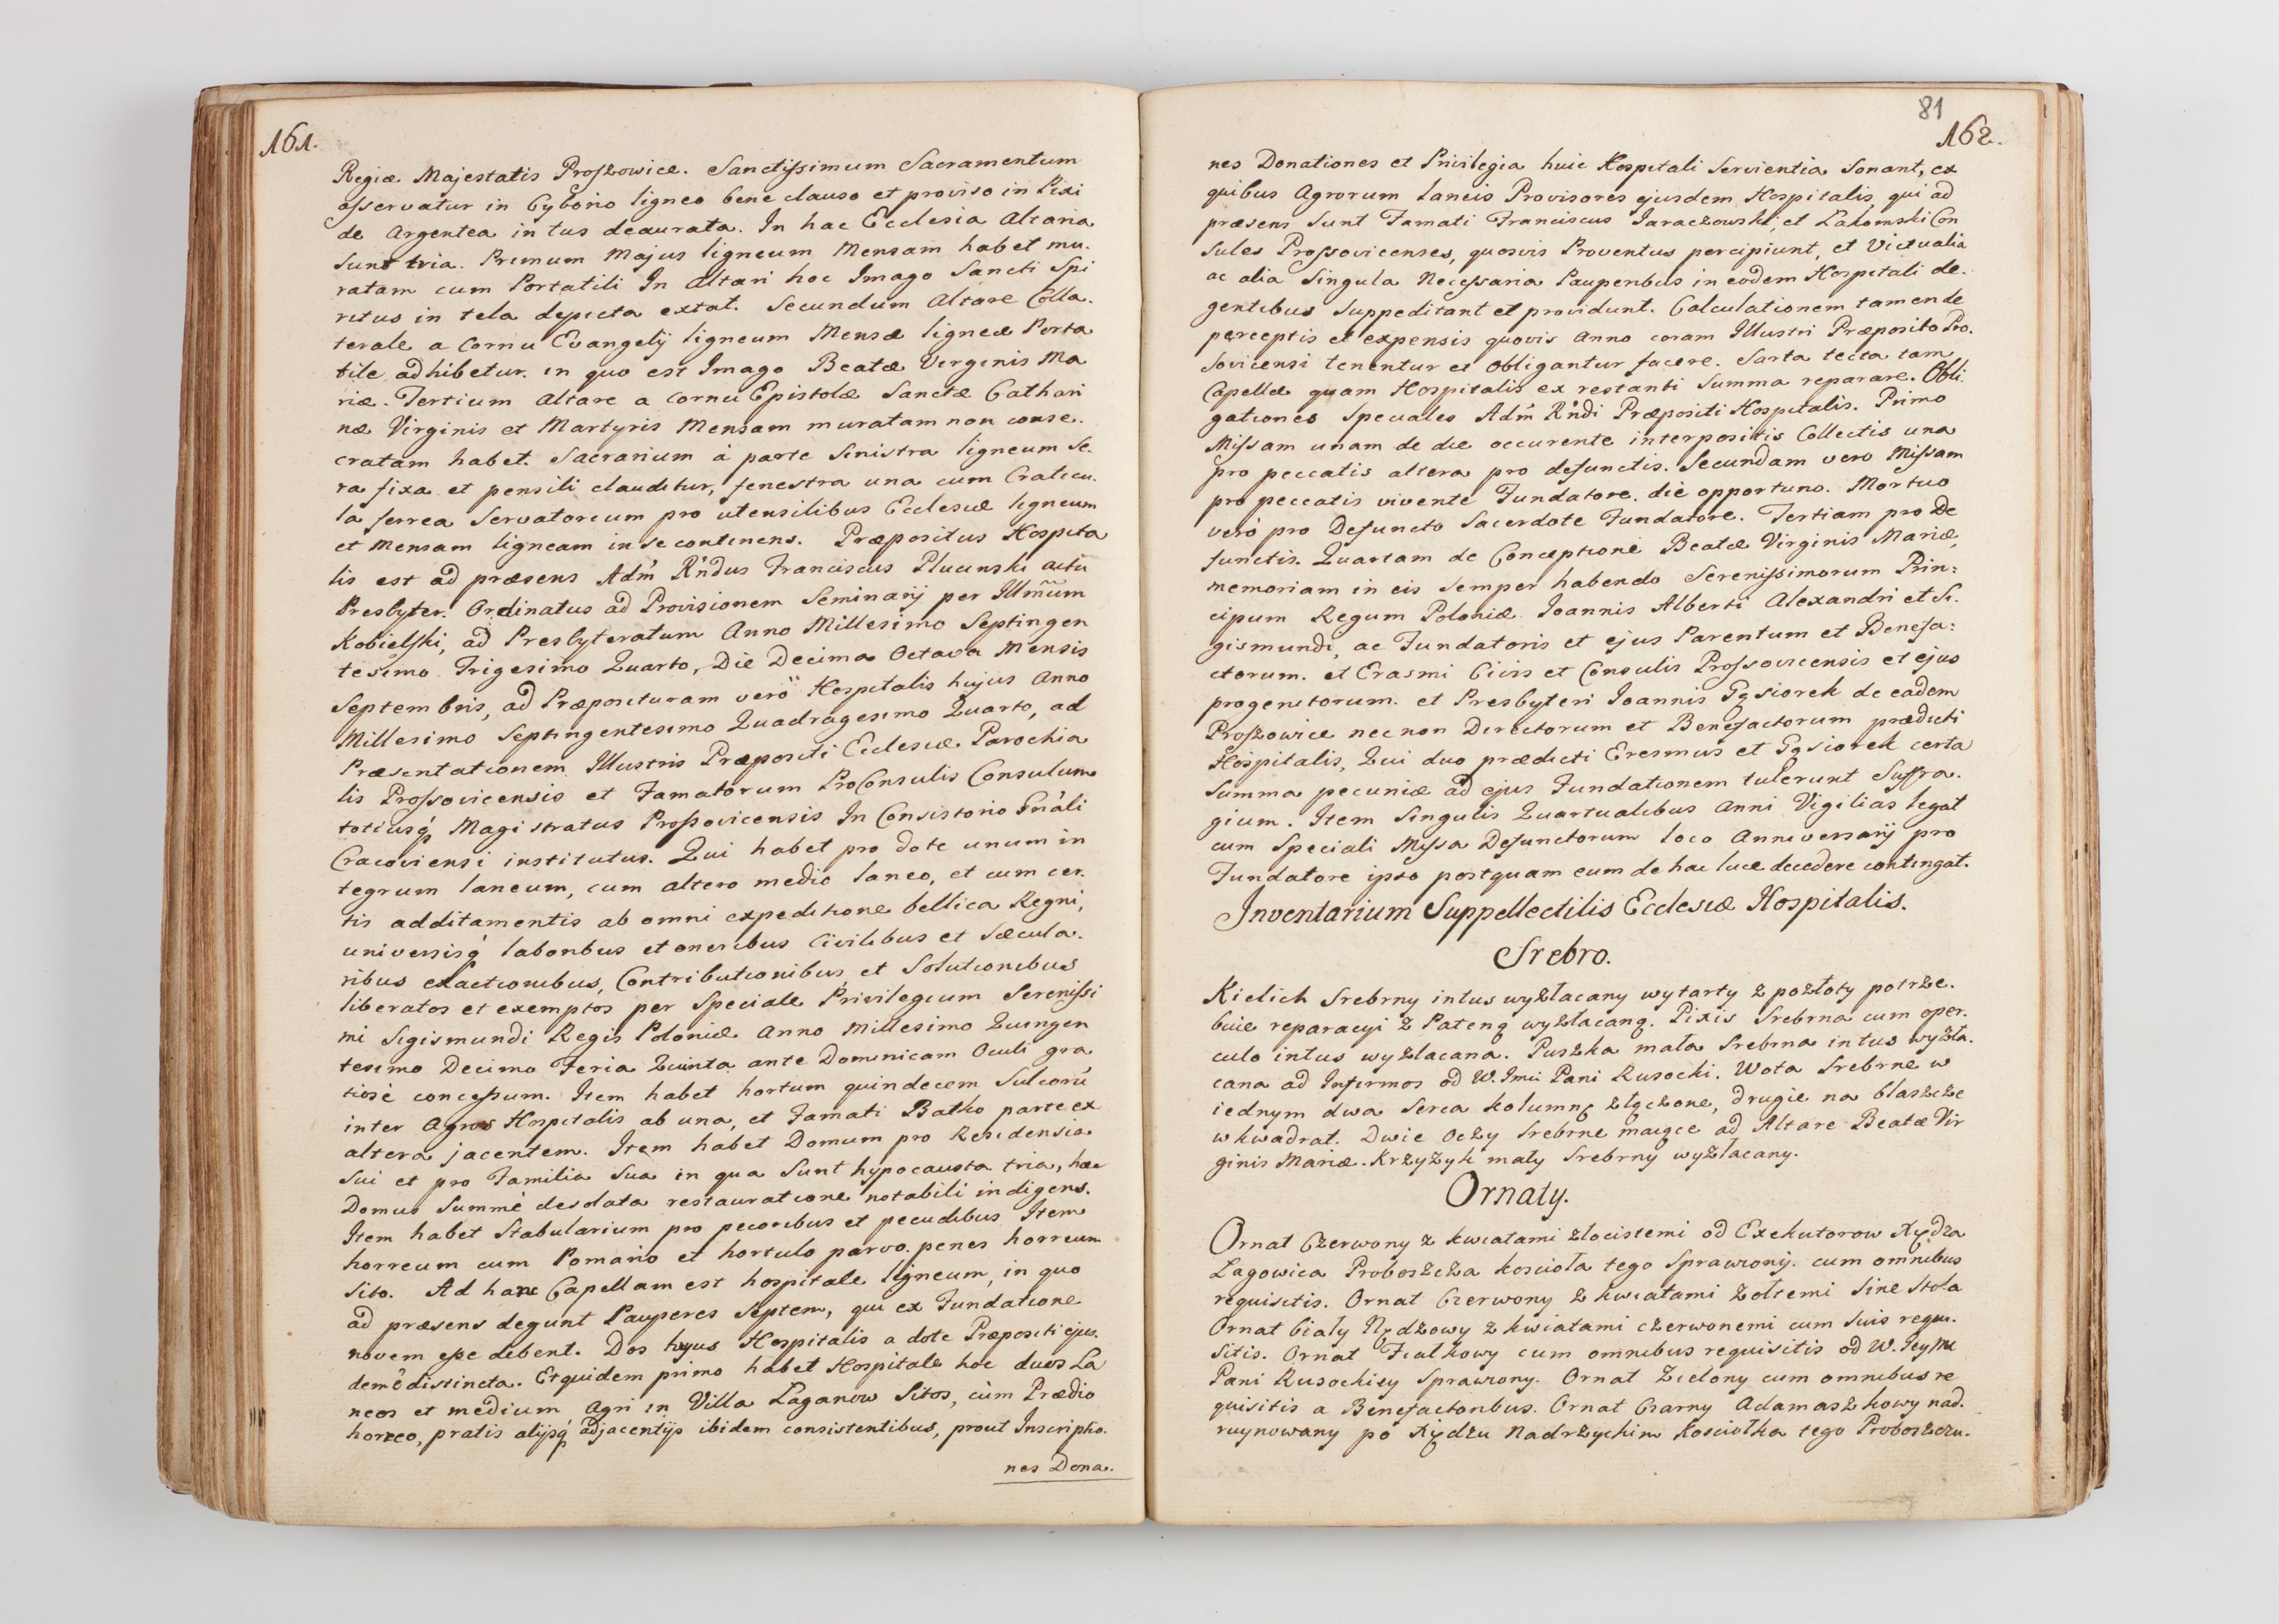 161.
Regiæ Majestatis Proszowice. Sanctissimum Sacramentum
asservatur in Cyborio ligneo bene clauso et proviso in Pixi
de Argentea intus deaurata. In hac Ecclesia Altaria
sunt tria. Primum Majus ligneum Mensam habet mu.
ratam cum Portatili In Altari hoc Imago Sancti Spi
ritus in tela depicta extat. Secundum Altare Colla.
terale a Cornu Evangelij ligneum Mensæ ligneæ Porta
tile adhibetur. in quo est Imago Beatæ Virginis Ma
riæ. Tertium Altare a Cornu Epistolæ Sanctæ Cathari
næ Virginis et Martyris Mensam muratam non conse.
cratam habet. Sacrarium à parte Sinistra ligneum Se.
ra fixa et pensili clauditur, fenestra una cum Craticu.
la ferrea Servatorium pro utensilibus Ecclesiæ ligneum
et Mensam ligneam in se continens. Præpositus Hospita
lis est ad præsens Adm̃ Rñdus Franciscus Plucinski actu
Presbyter. Ordinatus ad Provisionem Seminarij per Illmũm
Kobielski, ad Presbyteratum Anno Millesimo Septingen
tesimo Trigesimo Quarto, Die Decima Octava Mensis
Septembris, ad Præposituram verò Hospitalis hujus Anno
Millesimo Septingentesimo Quadragesimo Quarto, ad
Præsentationem Illustris Præpositi Ecclesiæ Parochia
lis Prossovicensis et Famatorum ProConsulis Consulum
totiusq́ Magistratus Prossovicensis In Consistorio Gñali
Cracoviensi institutus. Qui habet pro dote unum in
tegrum laneum, cum altero medio laneo, et cum cer.
tis additamentis ab omni expeditione bellica Regni,
universisq́ laboribus et oneribus Civilibus et Sæcula.
ribus exactionibus, Contributionibus et Solutionibus
liberatos et exemptos per Speciale Privilegium Serenissi
mi Sigismundi Regis Poloniæ Anno Millesimo Quingen
tesimo Decimo Feria Quinta ante Dominicam Oculi gra
tiosè concessum. Item habet hortum quindecem Sulcorũ
inter Agros Hospitalis ab una, et Famati Batko parte ex
altera jacentem. Item habet Domum pro Residensia
Sui et pro Familia Sua in qua Sunt hypocausta tria, hæc
Domus Summè desolata restauratione notabili indigens.
Item habet Stabularium pro pecoribus et pecudibus Item
horreum cum Pomario et hortulo parvo. penes horreum
Sito. Ad hanc Capellam est hospitale ligneum, in quo
ad præsens degunt Pauperes Septem, qui ex Fundatione
novem esse debent. Dos hujus Hospitalis a dote Præpositi ejus.
dem è distincta. Et quidem primo habet Hospitale hoc duos La
neos et medium Agri in Villa Łaganow Sitos, cùm Prædio
horreo, pratis alijsq́ adjacentijs ibidem consistentibus, prout Inscriptio.
nes Dona.
81
162.
nes Donationes et Privilegia huic Hospitali Servientia Sonant, ex
quibus Agrorum laneis Provisores ejusdem Hospitalis, qui ad
præsens Sunt Famati Franciscus Jaraczowski, et Lakomski Con
sules Prossovicenses, quosvis Proventus percipiunt, et Victualia
ac alia Singula Necessaria Pauperibus in eodem Hospitali de.
gentibus Suppeditant et provident. Calculationem tamen de
perceptis et expensis quovis Anno coram Illustri Præposito Pro.
sovicensi tenentur et obligantur facere. Sarta tecta tam
Capellæ quam Hospitalis ex restanti Summa reparare. Obli.
gationes Speciales Adm̃ Rñdi Præpositi Hospitalis. Primo
Missam unam de die occurente interpositis Collectis una
pro peccatis altera pro defunctis. Secundam vero Missam
pro peccatis vivente Fundatore. die opportuno. Mortuo
verò pro Defuncto Sacerdote Fundatore. Tertiam pro De
functis. Quartam de Conceptione Beatæ Virginis Mariæ,
memoriam in eis Semper habendo Serenissimorum Prin:
cipum Regum Poloniæ Joannis Alberti Alexandri et Si.
gismundi, ac Fundatoris et ejus Parentum et Benefa:
ctorum. et Erasmi Civis et Consulis Prossovicensis et ejus
progenitorum. et Presbyteri Joannis Gąsiorek de eadem
Proszowice nec non Directorum et Benefactorum prædicti
Hospitalis, Qui duo prædicti Eresmus et Gąsiorek certa
Summa pecuniæ ad ejus Fundationem tulerunt Suffra.
gium. Item Singulis Quartualibus Anni Vigilias legat
cum Speciali Missa Defunctorum loco Anniversarij pro
Fundatore ipso postquam eum de hac luce decedere contingat.
Inventarium Suppellectilis Ecclesiæ Hospitalis.
Srebro.
Kielich Srebrny intus wyzłacany wytarty z pozłoty potrze.
buie reparacyi z Pateną wyzłacaną. Pixis Srebrna cum oper.
culo intus wyzłacana. Puszka mała Srebrna intus wyzła.
cana ad Infirmos od W. Imci Pani Rusocki. Wota Srebrne w
iednym dwa Serca kolumnę złączone, drugie na blaszcze
w kwadrat. Dwie Oczy Srebrne maiące ad Altare Beatæ Vir
ginis Mariæ. Krzyzyk mały Srebrny wyzłacany.
Ornaty.
Ornat Czerwony z kwiatami złocistemi od Exekutorow Xiędza
Łagowica Proboszcza kosciola tego Sprawiony. cum omnibus
requisitis. Ornat Czerwony z kwiatami zołtemi Sine Stola
Ornat biały z kwiatami czerwonemi cum Suis requi.
sitis. Ornat Fiałkowy cum omnibus requisitis od W. Jeym
Pani Rusockiey Sprawiony. Ornat Zielony cum omnibus re
quisitis a Benefactoribus. Ornat Czarny Adamaszkowy nad.
ruynowany po Xiędzu Nadrzychim kosciołka tego Proboszczu.